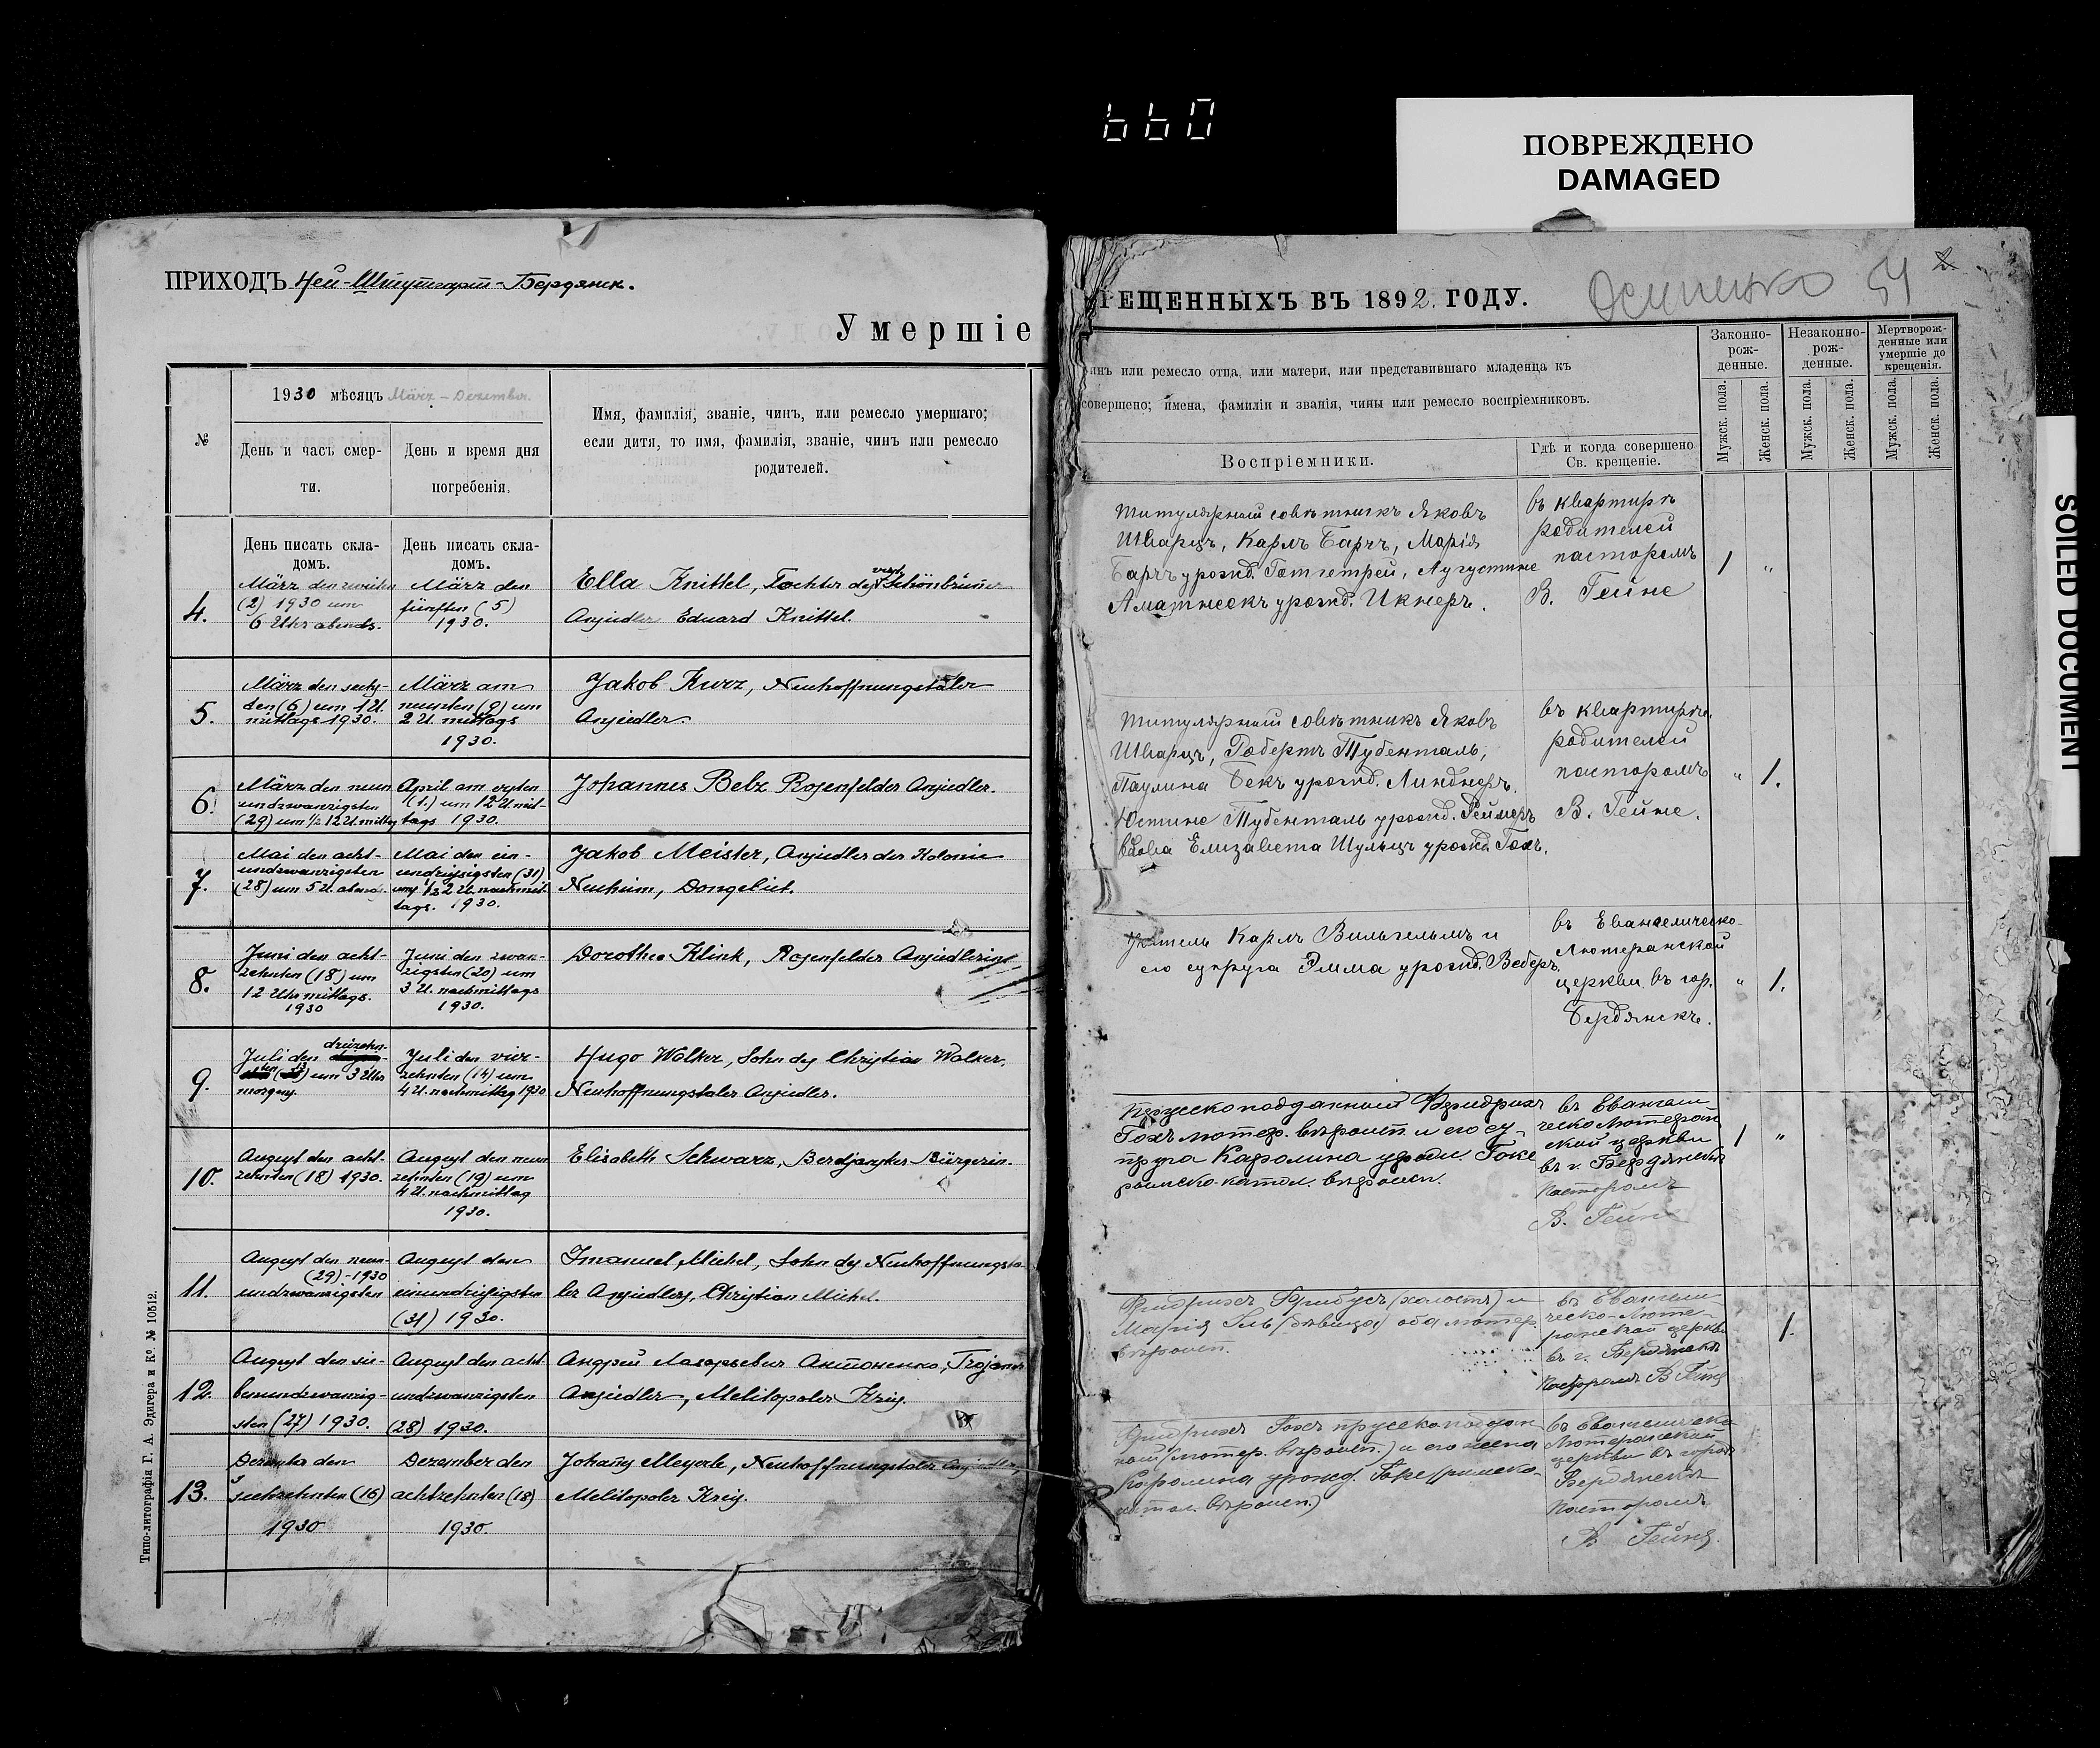 660
ПОВРЕЖДЕНО
DAMAGED
SOILED DOCUMENT
ПРИХОДЪ Ней-Штутгарт-Бердянск.
Умершіе
№
1930 мѣсяцъ März - Dezember.
День и часъ смер-
ти.
День и время дня
погребенія.
Имя, фамилія, званіе, чинъ, или ремесло умершаго;
если дитя, то имя, фамилія, званіе, чинъ или ремесло
родителей.
День писать скла-
домъ.
День писать скла-
домъ.
4.
März den zweiten
(2) 1930 um
6 Uhr abends.
März den
fünften (5)
1930.
Ella Knittel, Tochter des Schönbrunner
Ansiedlers Eduard Knittel.
5.
März den sechs-
ten (6) um 1 U.
mittags 1930.
März am
neunten (9) um
2 U. mittags
1930.
Jakob Kurz, Neuhoffnungstaler
Ansiedler
6.
März den neun
undzwanzigsten
(29) um ½ 12 U. mittag
April am ersten
(1.) um 12 U. mit-
tags 1930.
Johannes Belz Rosenfelder Ansiedler.
7.
Mai den acht-
undzwanzigsten
(28) um 5 U. abends.
Mai den ein-
unddreissigsten (31)
um ½ 2 U. nachmit-
tags. 1930.
Jakob Meister, Ansiedler der Kolonie
Neuheim, Dongebiet.
8.
Juni den acht-
zehnten (18) um
12 Uhr mittags.
1930
Juni den zwan-
zigsten (20) um
3 U. nachmittags
1930.
Dorothea Klink, Rosenfelder Ansiedlerin
9.
Juli den dreizehn-
ten (13) um 3 Uhr
morgens.
Juli den vier-
zehnten (14) um
4 U. nachmittag 1930
Hugo Walker, Sohn des Christian Walker.
Neuhoffnungstaler Ansiedler.
10.
August den acht-
zehnten (18) 1930.
August den neun
zehnten (19) um
4 U. nachmittag
1930.
Elisabeth Schwarz, Berdjansker Bürgerin.
11.
August den neun-
(29) - 1930
undzwanzigsten
August den
einunddreissigsten
(31) 1930.
Imanuel Michel, Sohn des Neuhoffnungsta-
ler Ansiedlers, Christian Michel.
12.
August den sie-
benundzwanzig-
sten (27) 1930.
August den acht
undzwanzigsten
(28) 1930.
Андрей Лазарьевич Антоненко, Trojaner
Ansiedler, Melitopoler Kreis.
13.
Dezember den
sechzehnten (16)
1930
Dezember den
achtzehnten (18)
1930.
Johannes Meyerle, Neuhoffnungstaler Ansiedler,
Melitopoler Kreis.
Типо-литографія Г. А. Эдигера и Ко. № 10512.
РЕЩЕННЫХЪ ВЪ 1892. ГОДУ.
Осипенко 54
2
инъ или ремесло отца, или матери, или представившаго младенца къ
совершено; имена, фамиліи и званія, чины или ремесло воспріемниковъ.
Воспріемники.
Гдѣ и когда совершено
Св. крещеніе.
Законно-
рож-
денные.
Незаконно-
рож-
денные.
Мертворож-
денные или
умершіе до
крещенія.
Мужск. пола.
Женск. пола.
Мужск. пола.
Женск. пола.
Мужск. пола.
Женск. пола.
Титулярный совѣтникъ Яковъ
Шварцъ, Карлъ Барчъ, Марія
Барчъ урожд. Августине
урожд. Икнеръ.
въ квартирѣ
родителей
пасторомъ
В. Гейне
1 "
Титулярный совѣтникъ Яковъ
Шварцъ, Робертъ Тубенталь,
Паулина Бекъ урожд. Линднеръ.
Юстине Тубенталь урожд. Реймеръ
вдова Елизавета Шульцъ урожд. Гохъ.
въ квартирѣ
родителей
пасторомъ
В. Гейне.
" 1.
учитель Карлъ Вильгельмъ и
его супруга Эмма урожд. Веберъ
въ Евангелическо-
Лютеранской
церкви въ гор.
Бердянскѣ.
" 1.
Прусскоподданный Фридрихъ
Гохъ лютер. вѣроисп. и его су-
пруга Каролина урожд. Гоке
римско-катол. вѣроисп.
въ Евангели
ческо Лютеран
ской церкви
въ г. Бердянскѣ
пасторомъ
В. Гейне
1 "
Фридрихъ (холостъ) и
Марія (дѣвица) оба лютер.
вѣроисп.
въ Евангели
ческо-Люте-
ранской церкви
въ г. Бердянскѣ
пасторомъ В Гейне
1.
Фридрихъ Гохъ прусскоподдан
ный (лютер. вѣроисп.) и его жена
Каролина урожд. Гоке (римско-
катол. вѣроисп.)
въ Евангелическо
Лютеранской
церкви въ городѣ
Бердянскѣ
пасторомъ
В Гейне.